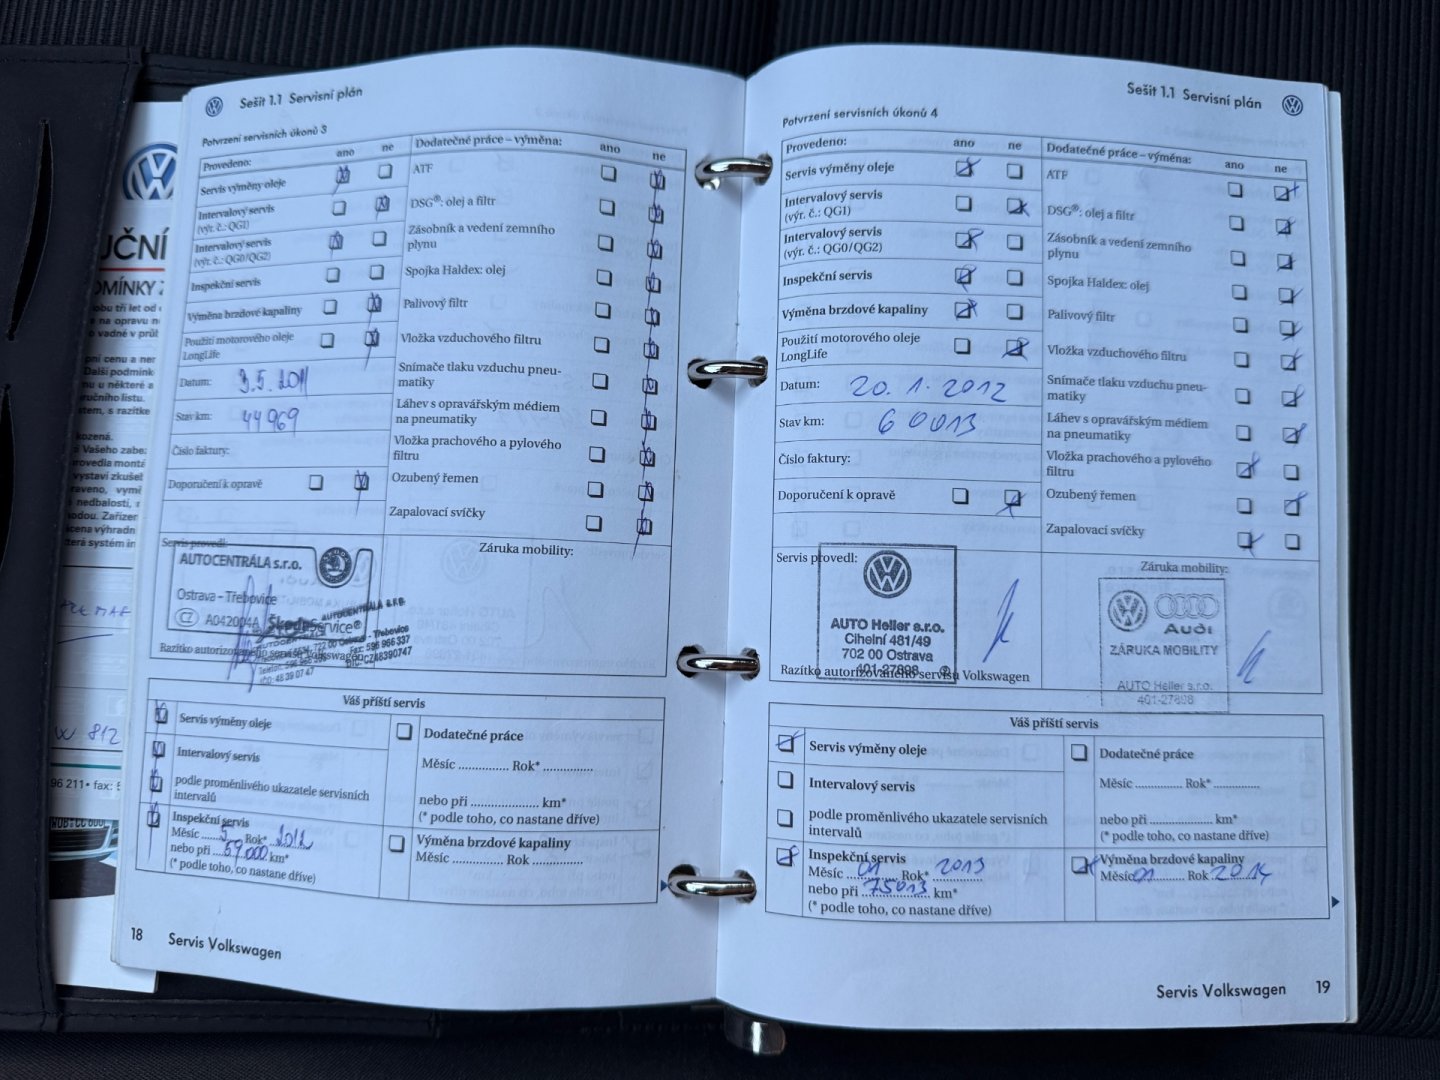 Sešit 1.1 Servisní plán
Potvrzení servisních úkonů 3
Provedeno: ano ne
Servis výměny oleje
Intervalový servis
(výr. č.: QG1)
Intervalový servis
(výr. č.: QG0/QG2)
Inspekční servis
Výměna brzdové kapaliny
Použití motorového oleje
LongLife
Datum: 3.5.2011
Stav km: 44969
Číslo faktury:
Doporučení k opravě
Servis provedl:
AUTOCENTRÁLA s.r.o.
Ostrava - Třebovice
CZ A042004A ŠkodaService®
Razítko autorizovaného servisu Volkswagen
Dodatečné práce – výměna: ano ne
ATF
DSG®: olej a filtr
Zásobník a vedení zemního
plynu
Spojka Haldex: olej
Palivový filtr
Vložka vzduchového filtru
Snímače tlaku vzduchu pneu-
matiky
Láhev s opravářským médiem
na pneumatiky
Vložka prachového a pylového
filtru
Ozubený řemen
Zapalovací svíčky
Záruka mobility:
Váš příští servis
Servis výměny oleje
Intervalový servis
podle proměnlivého ukazatele servisních
intervalů
Inspekční servis
Měsíc 5 Rok* 2012
nebo při 59.000 km*
(* podle toho, co nastane dříve)
Dodatečné práce
Měsíc ............... Rok* ..............
nebo při .................... km*
(* podle toho, co nastane dříve)
Výměna brzdové kapaliny
Měsíc ............... Rok ...............
18 Servis Volkswagen
Sešit 1.1 Servisní plán
Potvrzení servisních úkonů 4
Provedeno: ano ne
Servis výměny oleje
Intervalový servis
(výr. č.: QG1)
Intervalový servis
(výr. č.: QG0/QG2)
Inspekční servis
Výměna brzdové kapaliny
Použití motorového oleje
LongLife
Datum: 20.1.2012
Stav km: 60013
Číslo faktury:
Doporučení k opravě
Servis provedl:
AUTO Heller s.r.o.
Cihelní 481/49
702 00 Ostrava
401-27898 ②
Razítko autorizovaného servisu Volkswagen
Dodatečné práce – výměna: ano ne
ATF
DSG®: olej a filtr
Zásobník a vedení zemního
plynu
Spojka Haldex: olej
Palivový filtr
Vložka vzduchového filtru
Snímače tlaku vzduchu pneu-
matiky
Láhev s opravářským médiem
na pneumatiky
Vložka prachového a pylového
filtru
Ozubený řemen
Zapalovací svíčky
Záruka mobility:
Audi
ZÁRUKA MOBILITY
AUTO Heller s.r.o.
401-27898
Váš příští servis
Servis výměny oleje
Intervalový servis
podle proměnlivého ukazatele servisních
intervalů
Inspekční servis
Měsíc 01 Rok* 2013
nebo při 75013 km*
(* podle toho, co nastane dříve)
Dodatečné práce
Měsíc ............... Rok* ..............
nebo při .................... km*
(* podle toho, co nastane dříve)
Výměna brzdové kapaliny
Měsíc 01 Rok 2014
Servis Volkswagen 19